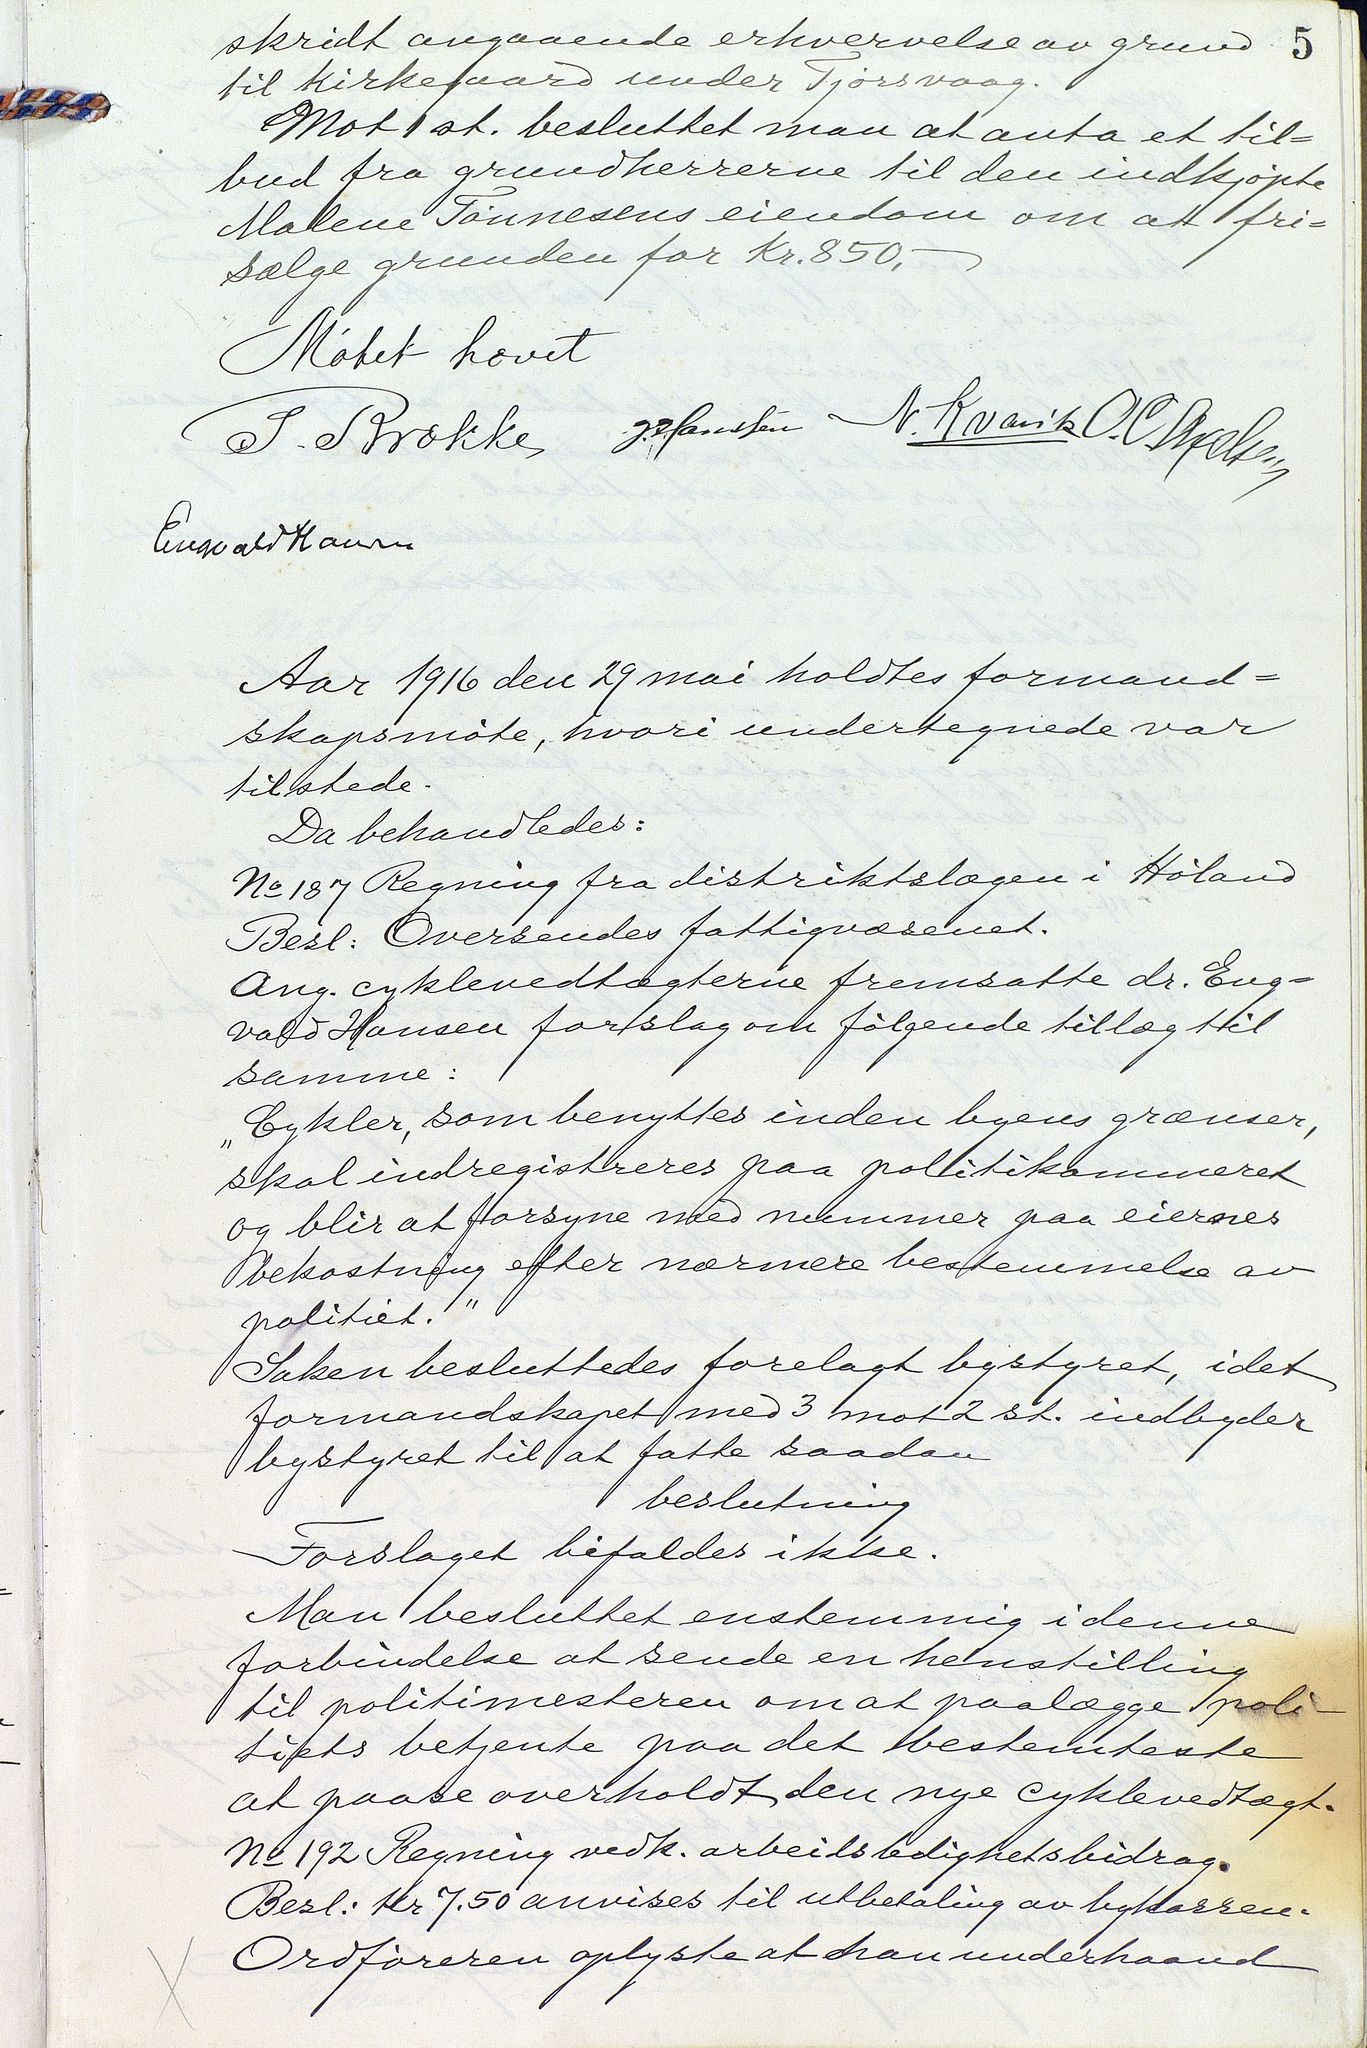 5
skridt angaaende erhvervelse av grund
til kirkegaard under Tjørsvaag.
Mot 1 st. besluttet man at anta et til=
bud fra grundherrerne til den indkjøpte
Malene Tønnesens eiendom om at fri=
sælge grunden for Kr. 850,-
Møtet hævet
S. Brække
N. Kvavik O. C. Axelsen
Engvald Hansen
Aar 1916 den 29 mai holdtes formand=
skapsmøte, hvori undertegnede var
tilstede.
Da behandledes:
No 187 Regning fra distriktslægen i Høland
Besl: Oversendes fattigvæsenet.
Ang. cyklevedtægterne fremsatte dr. Eng=
vald Hansen forslag om følgende tillæg til
samme:
„Cykler, som benyttes inden byens grænser,
skal indregistreres paa politikammeret
og blir at forsyne med nummer paa eiernes
bekostning efter nærmere bestemmelse av
politiet."
Saken besluttedes forelagt bystyret, idet
formandskapet med 3 mot 2 st. indbyder
bystyret til at fatte saadan
beslutning
Forslaget bifaldes ikke.
Man besluttet enstemmig i denne
forbindelse at sende en henstilling
til politimesteren om at paalægge poli-
tiets betjente paa det bestemteste
at paase overholdt den nye cyklevedtægt.
No 192 Regning vedk. arbeidsledighetsbidrag.
Besl.: Kr 7.50 anvises til utbetaling av bykassen.
Ordføreren oplyste at han underhaand